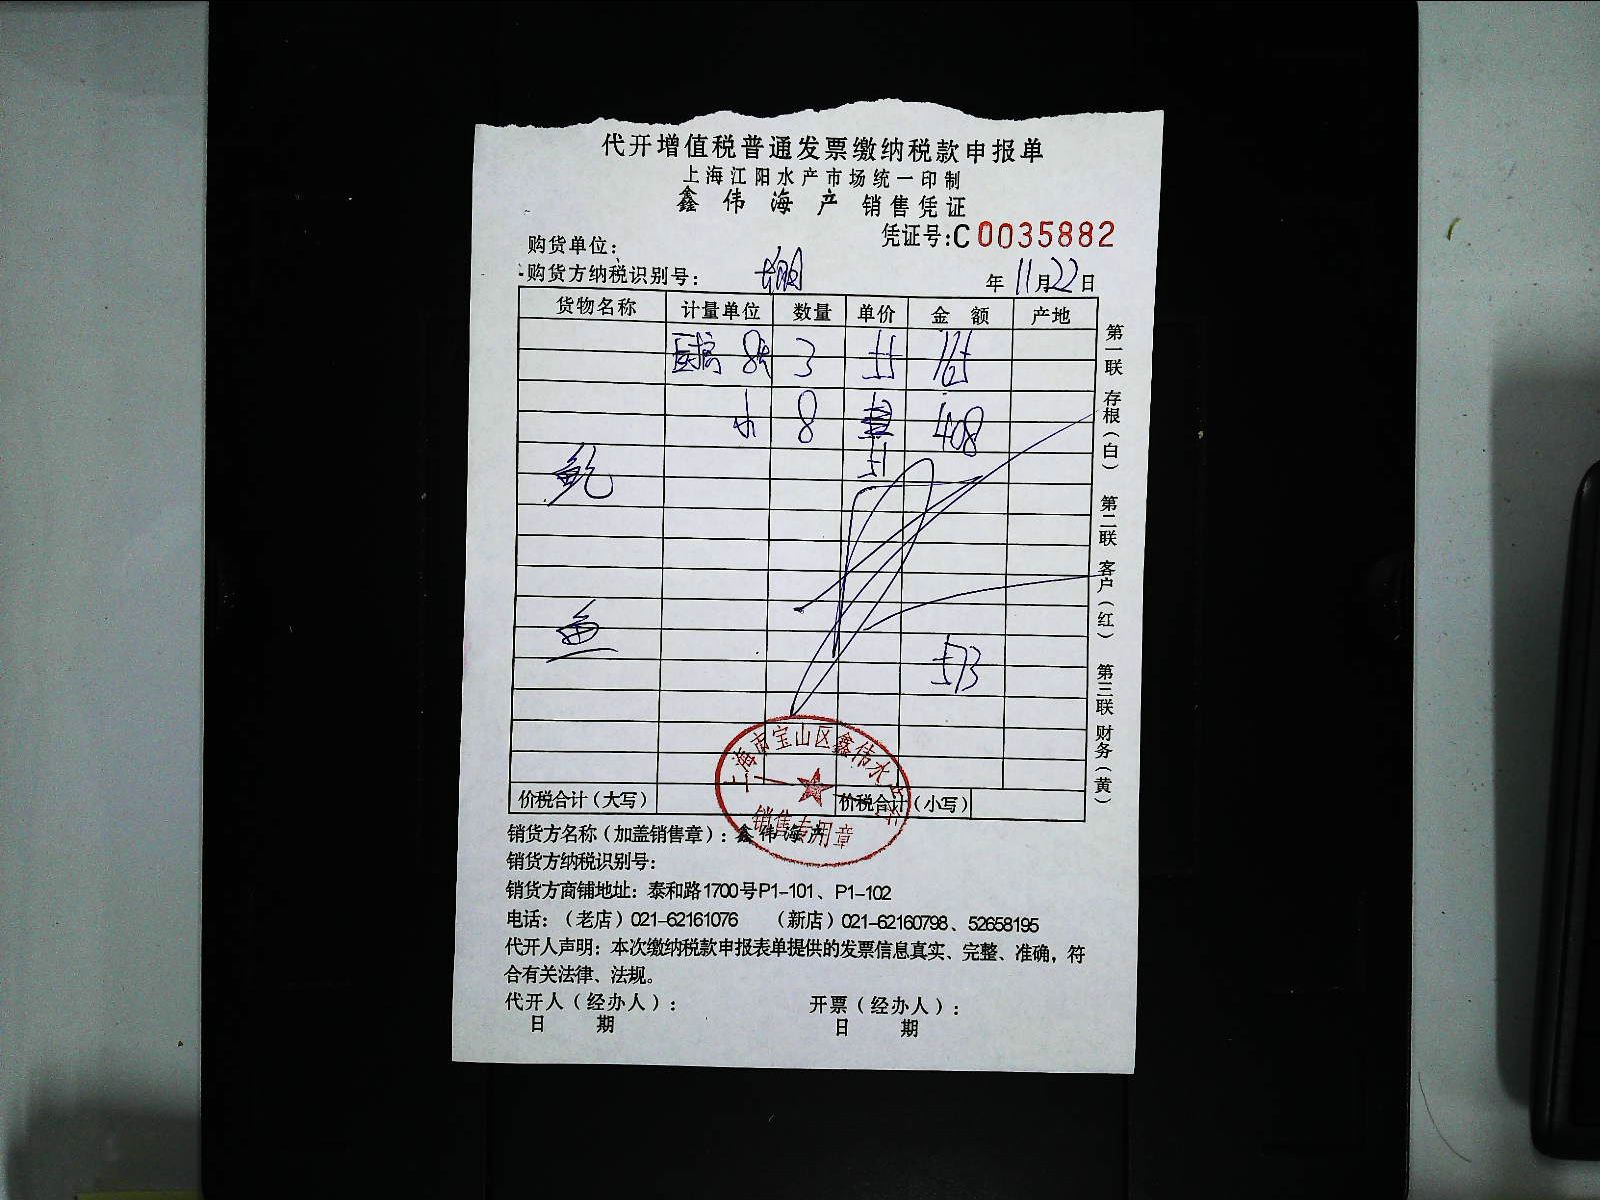 代开增值税普通发票缴纳税款申报单
上海江阳水产市场统一印制
鑫伟海产 销售凭证
凭证号:C0035882
购货单位:
购货方纳税识别号:
年11月22日
货物名称 计量单位 数量 单价 金额 产地
3 55 165
小 8 51 408
鱼
573
上海市宝山区鑫伟水产
销售专用章
价税合计(大写) 价税合计(小写)
销货方名称(加盖销售章):鑫伟海产
销货方纳税识别号:
销货方商铺地址:泰和路1700号P1-101、P1-102
电话:(老店)021-62161076 (新店)021-62160798、52658195
代开人声明:本次缴纳税款申报表单提供的发票信息真实、完整、准确,符
合有关法律、法规。
代开人(经办人): 开票(经办人):
日期 日期
第一联 存根(白) 第二联 客户(红) 第三联 财务(黄)